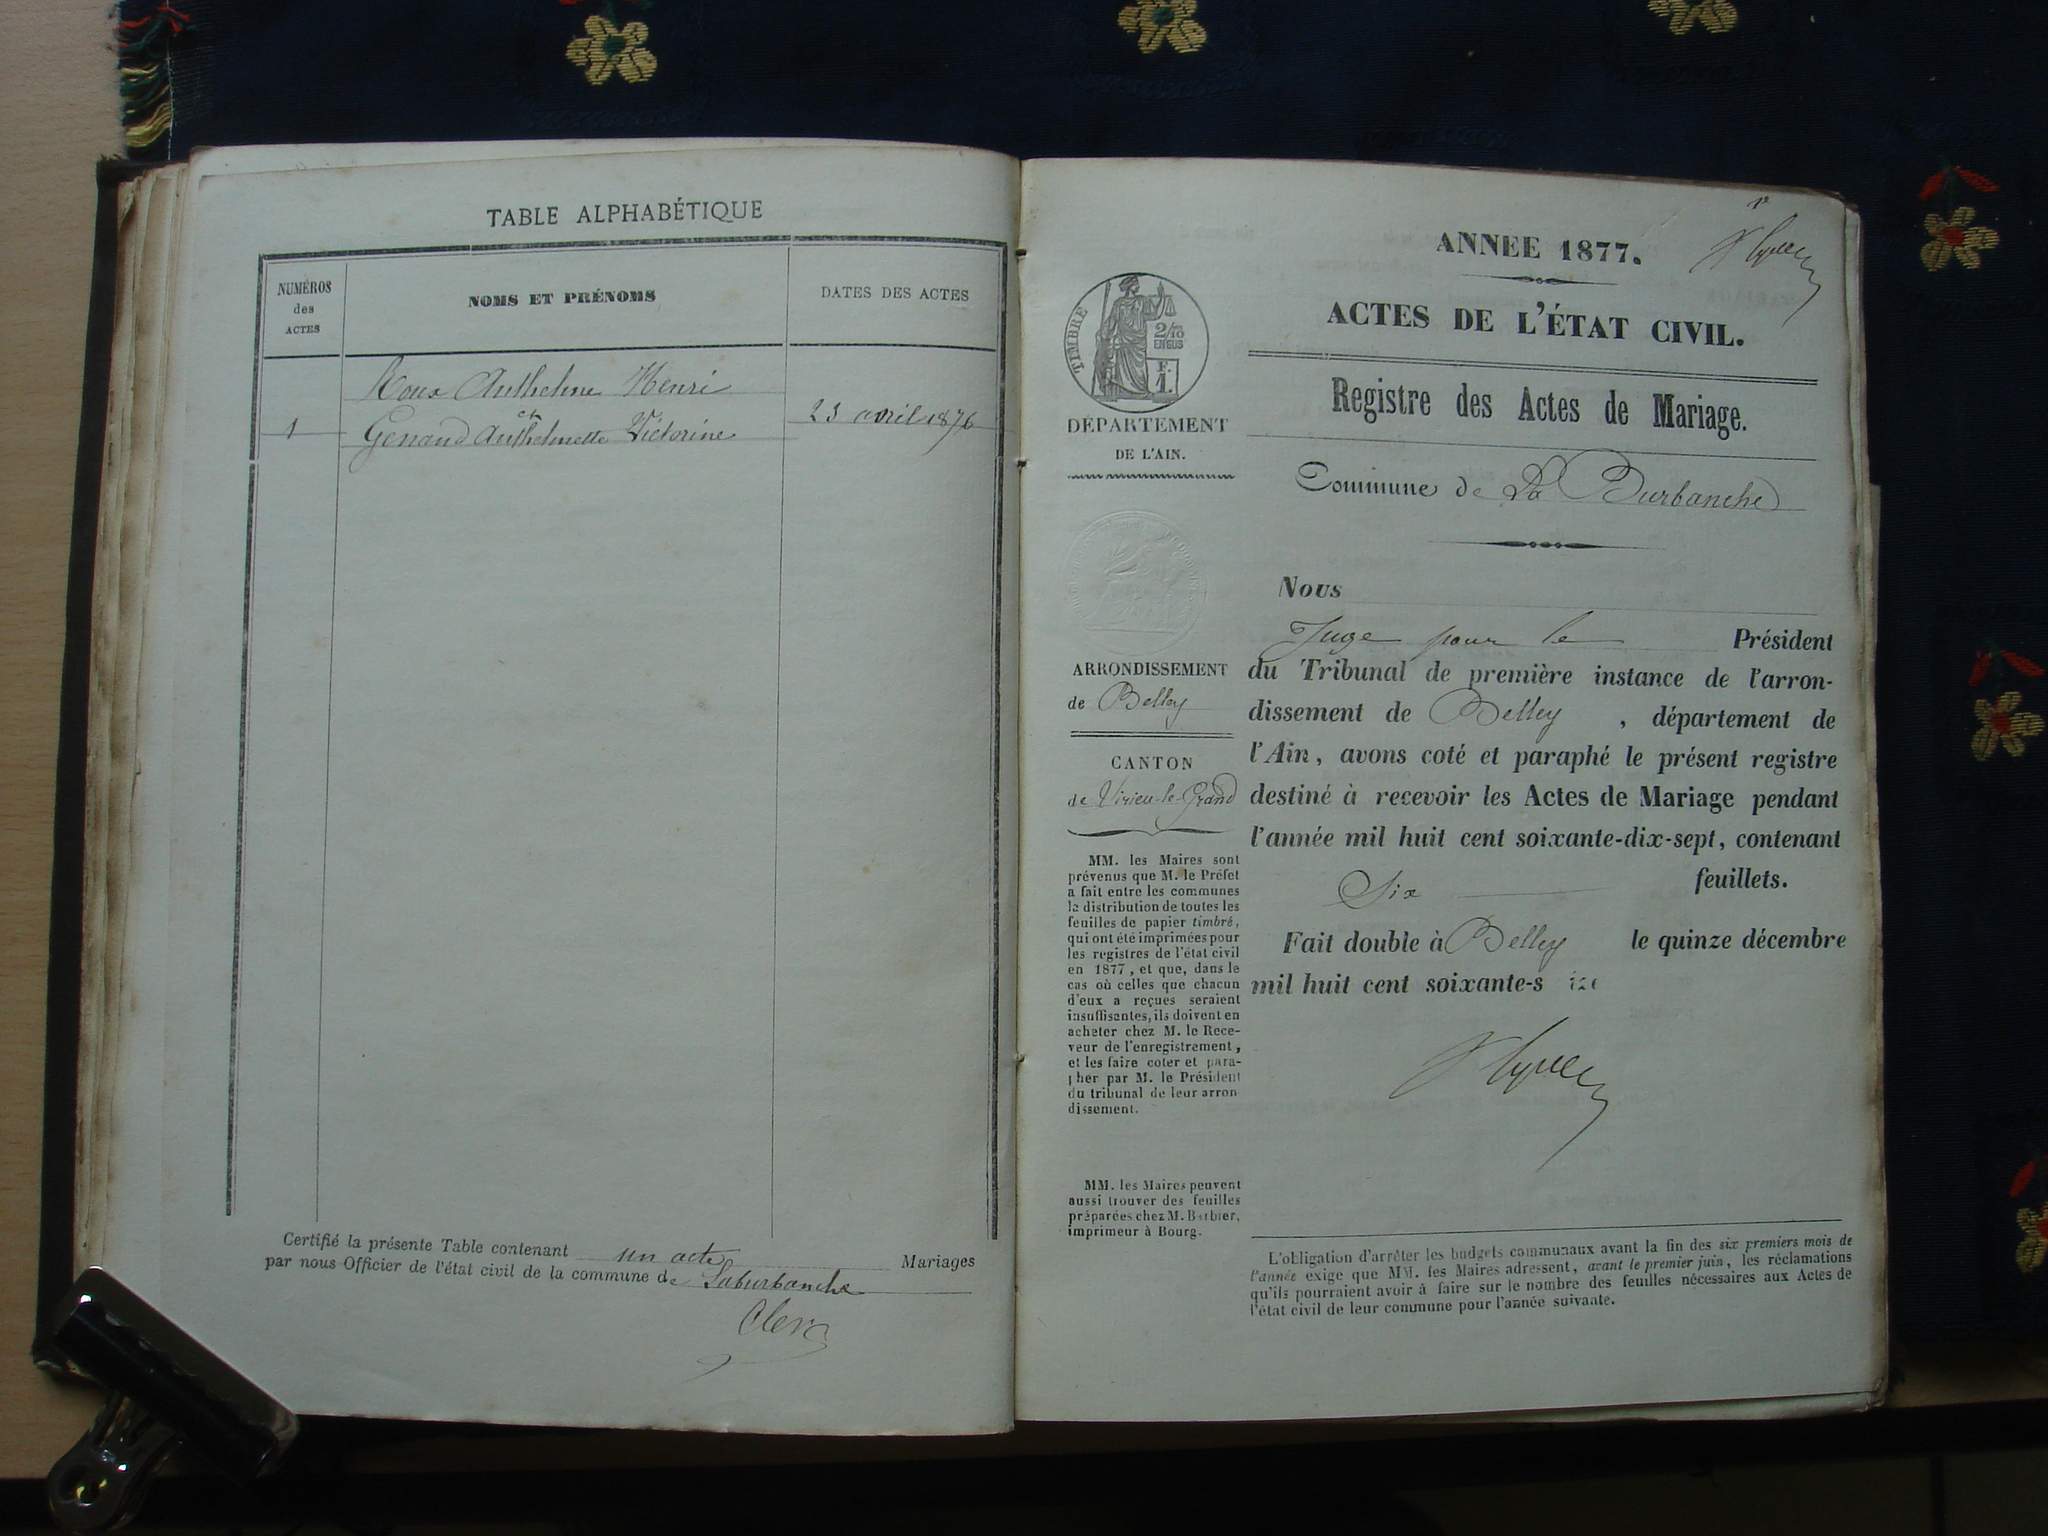 TABLE ALPHABÉTIQUE
NUMÉROS
des
ACTES
NOMS ET PRÉNOMS
DATES DES ACTES
Roux Anthelme Henri
et
1 Genand Anthelmette Victorine 23 avril 1876
Certifié la présente Table contenant un acte Mariages
par nous Officier de l'état civil de la commune de Laburbanche
Clerc
ANNEE 1877.
ACTES DE L'ÉTAT CIVIL.
Registre des Actes de Mariage.
Commune de La Burbanche
TIMBRE
2/10
EN SUS
F.
1.
DÉPARTEMENT
DE L'AIN.
ARRONDISSEMENT
de Belley
CANTON
de Virieu-le-Grand
MM. les Maires sont
prévenus que M. le Préfet
a fait entre les communes
la distribution de toutes les
feuilles de papier timbré,
qui ont été imprimées pour
les registres de l'état civil
en 1877, et que, dans le
cas où celles que chacun
d'eux a reçues seraient
insuffisantes, ils doivent en
acheter chez M. le Rece-
veur de l'enregistrement,
et les faire coter et para-
pher par M. le Président
du tribunal de leur arron
dissement.
MM. les Maires peuvent
aussi trouver des feuilles
préparées chez M. Barbier,
imprimeur à Bourg.
Nous
Juge pour le Président
du Tribunal de première instance de l'arron-
dissement de Belley, département de
l'Ain, avons coté et paraphé le présent registre
destiné à recevoir les Actes de Mariage pendant
l'année mil huit cent soixante-dix-sept, contenant
Six feuillets.
Fait double à Belley le quinze décembre
mil huit cent soixante-s
L'obligation d'arrêter les budgets communaux avant la fin des six premiers mois de
l'année exige que MM. les Maires adressent, avant le premier juin, les réclamations
qu'ils pourraient avoir à faire sur le nombre des feuilles nécessaires aux Actes de
l'état civil de leur commune pour l'année suivante.